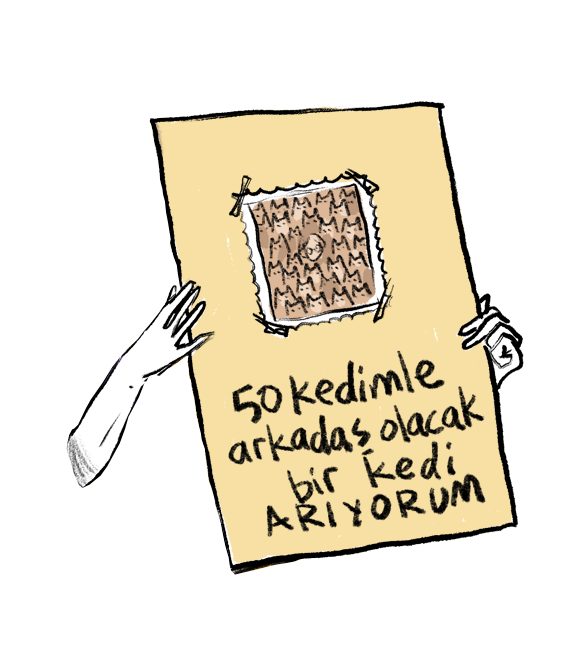 50 kedimle
arkadaş olacak
bir kedi
ARIYORUM